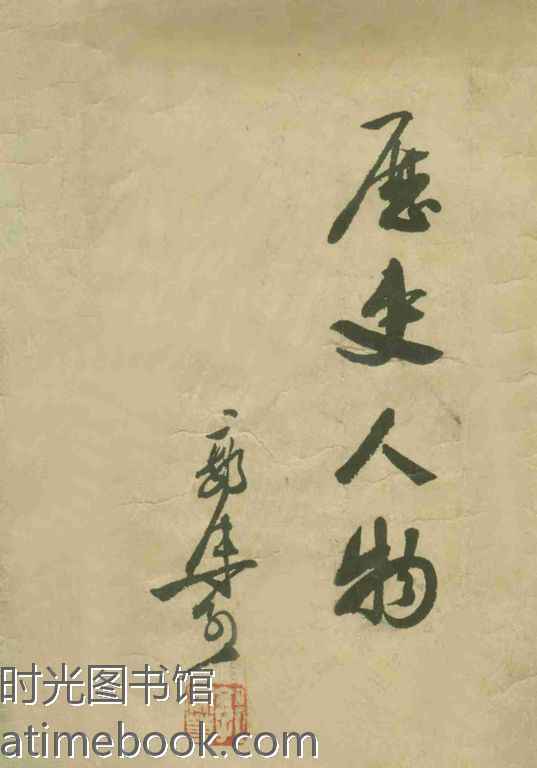 歷史人物
郭沫若
时光图书馆
atimebook.com